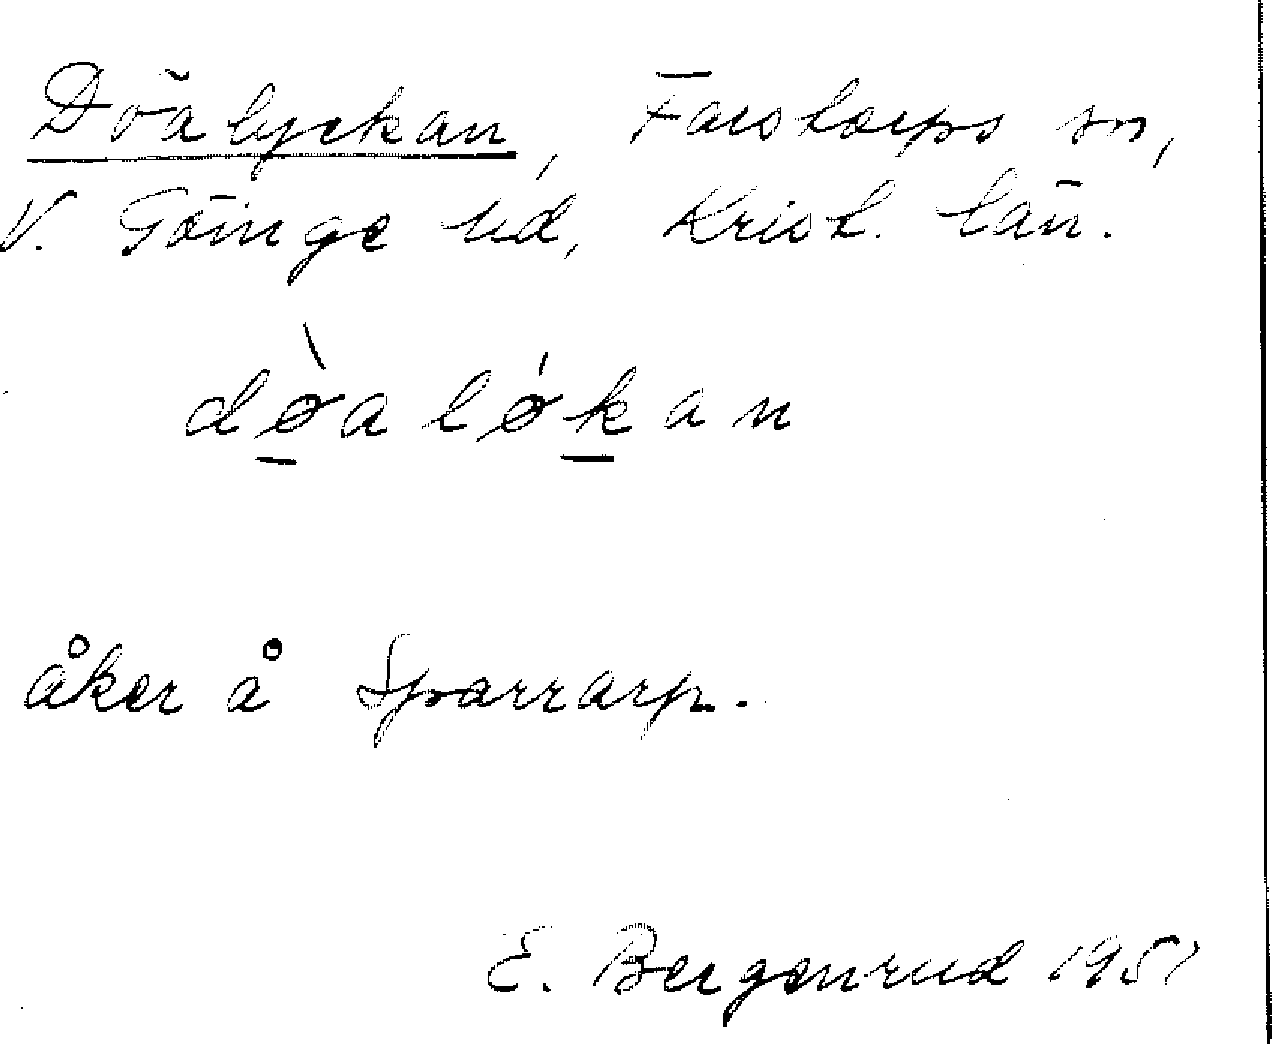 Döalyckan, Farstorps sn,
V. Göinge hd, Krist. län.
dø̀aløkan
åker å Sparrarp.
E. Bergenrud 1951